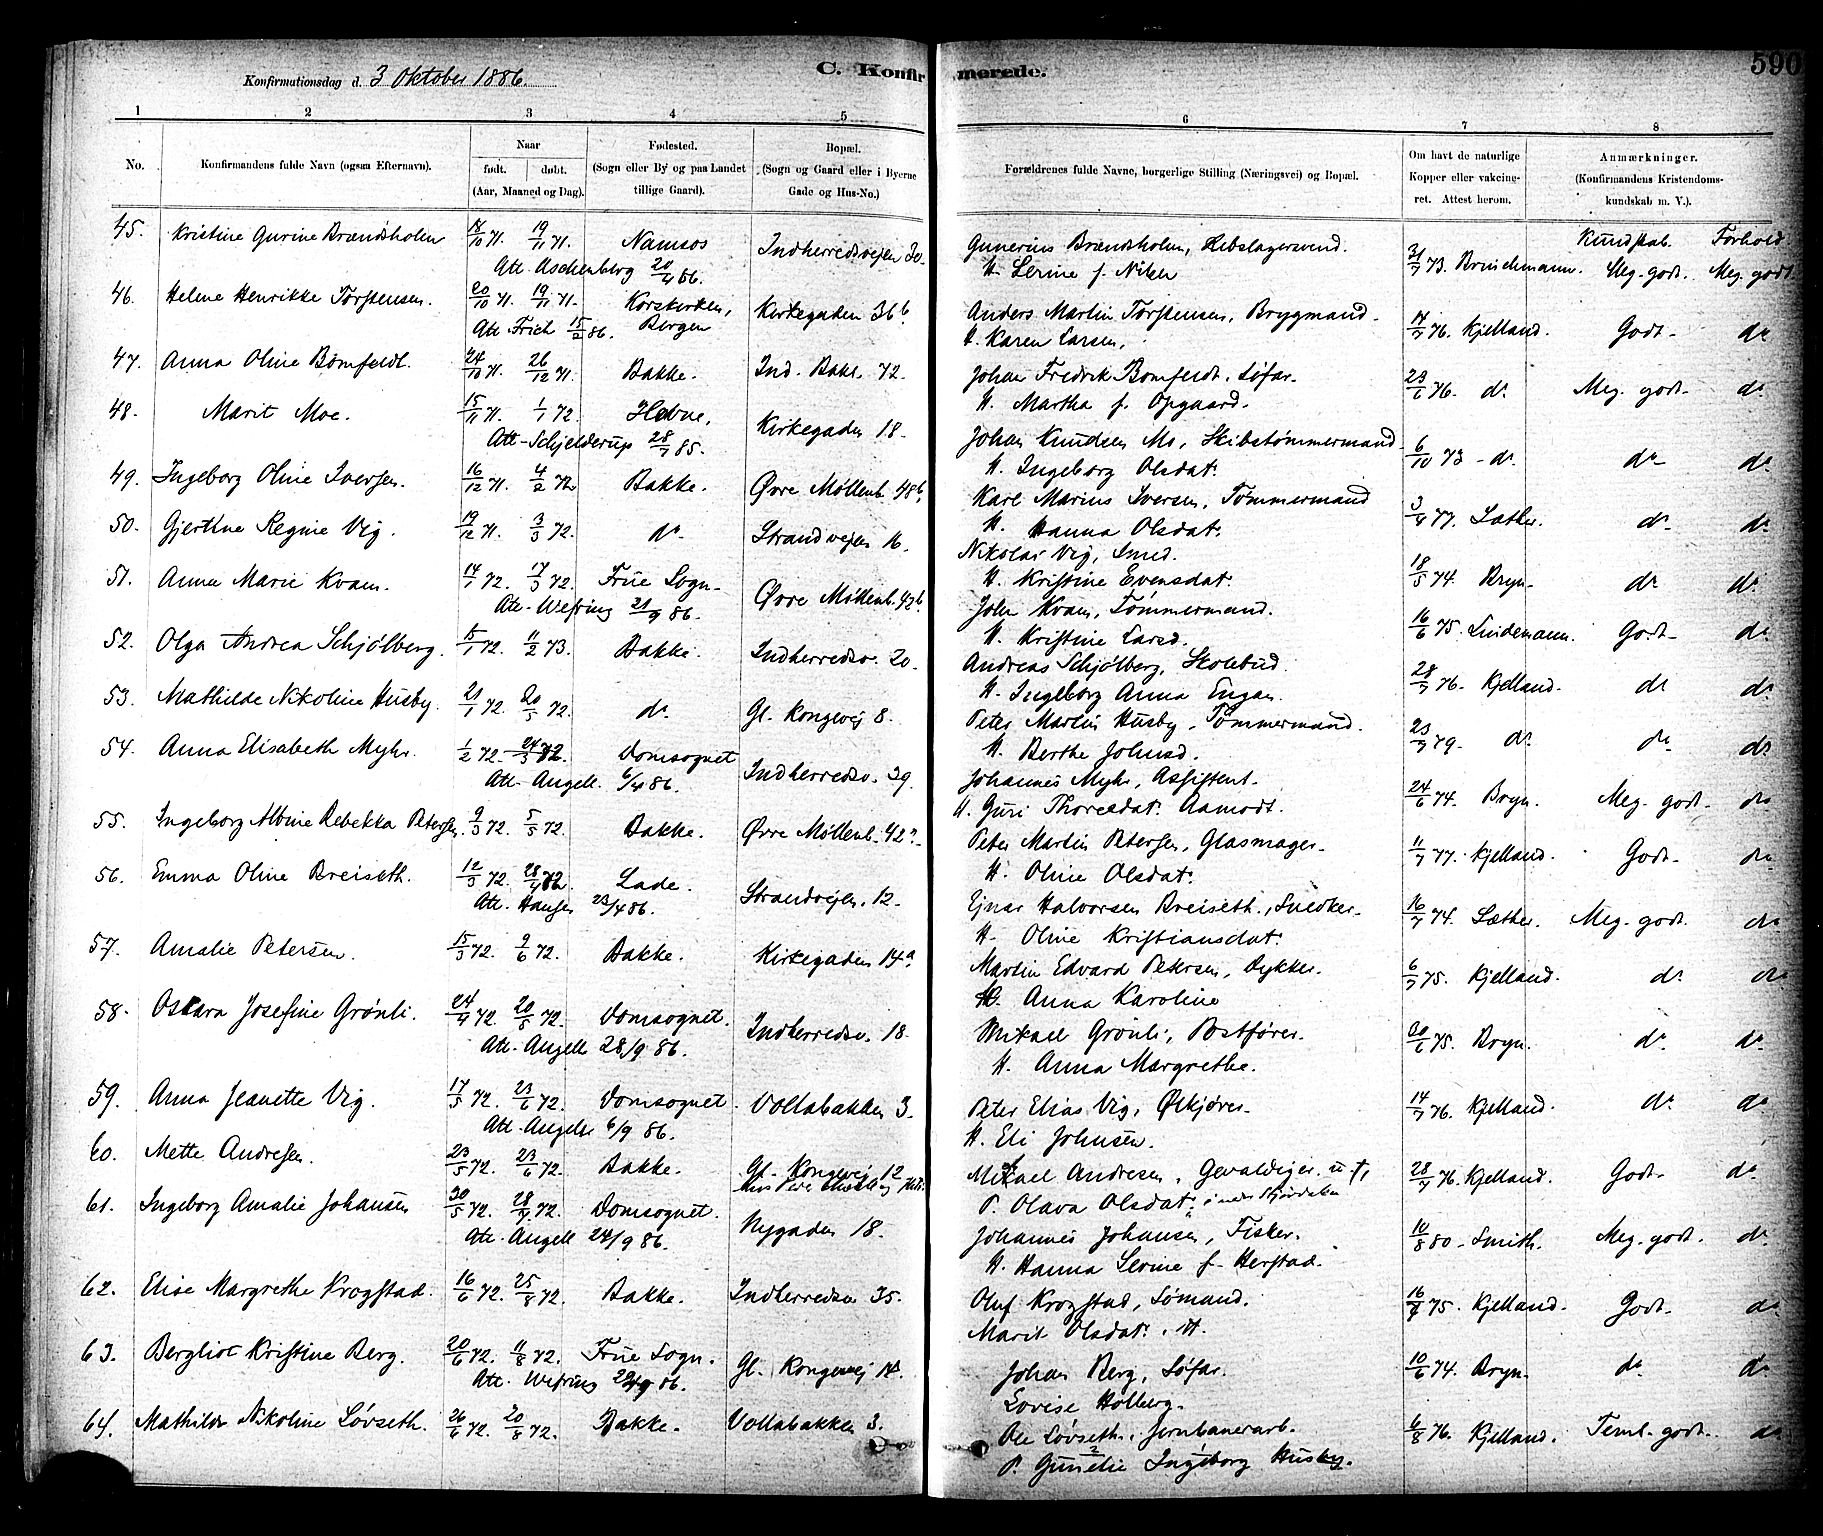 Konfirmationsdag d. 3 Oktober 1886.
C. Konfirmerede.
590
1 2 3 4 5 6 7 8
No.
Konfirmandens fulde Navn (ogsaa Efternavn).
Naar
født. døbt.
(Aar, Maaned og Dag).
Fødested.
(Sogn eller By og paa Landet
tillige Gaard).
Bopæl.
(Sogn og Gaard eller i Byerne
Gade og Hus-No.)
Forældrenes fulde Navne, borgerlige Stilling (Næringsvei) og Bopæl.
Om havt de naturlige
Kopper eller vakcine-
ret. Attest herom.
Anmærkninger.
(Konfirmandens Kristendoms-
kundskab m. V.).
Kundskab. Forhold
45. Kristine Gurine Brændsholm 18/10 71. 19/11 71. Namsos Indherredsvejen 30. Gunerius Brændsholm, 31/7 73. Brinchmann. Meg. godt. Meg. godt
Att. Aschenberg 20/4 86. H. Serine f.
46. Helene Henrikke Torstensen. 20/10 71. 19/11 71. Korskirken, Kirkegaden 36 b. Anders Martin Torstensen, Brygmand 14/7 76. Kjelland. Godt do
Att. Frich 15/2 86. Bergen H. Karen Larsen,
47. Anna Oline Bomfeldt. 24/10 71. 26/12 71. Bakke. Ind. Bakl. 72. Johan Fredrik Bomfeldt, Søfar. 23/6 76. do Meg. godt do
H. Martha f. Opgaard.
48. Marit Moe. 15/11 71. 1/1 72. Hevne, Kirkegaden 18. Johan Knudsen Mo, Skibstømmermand 6/10 73 do do do
Att. Schjelderup 28/7 85. H. Ingeborg Olsdat.
49. Ingeborg Oline Iversen. 16/12 71. 4/2 72 Bakke. Øvre Møllenb. 48 b. Karl Marius Iversen, Tømmermand 3/4 77. Sæther. do do
H. Hanna Olsdat.
50. Gjertine Regine Vig. 19/12 71. 3/3 72. do Strandvejen 16. Nikolai Vig, Smed. 18/5 74. Bryn. do do
H. Kristine Evensdat.
51. Anna Marie Kvam. 14/1 72. 17/3 72. Frue Sogn Øvre Møllenb. 43 b. John Kvam, Tømmermand. 16/6 75. Lindemann. Godt do
Att. Wefring 21/9 86. H. Kristine Larsd.
52. Olga Andrea Schjølberg. 15/1 72. 11/2 73. Bakke. Indherredsv. 20. Andreas Schjølberg, Skolebud. 28/7 76. Kjelland. do do
H. Ingeborg Anna Engan.
53. Mathilde Nikoline Husby. 21/1 72. 20/5 72. do Gl. Kongevej 8. Peter Martin Husby, Tømmermand. 23/7 79. do do do
H. Berthe Johnsd.
54. Anna Elisabeth Myhr. 1/2 72. 24/3 72. Domsognet Indherredsv. 39. Johannes Myhr, Assistent. 24/6 74. Bryn. Meg. godt do
Att. Angell. 6/4 86. H. Guri Thoresdat. Aamodt.
55. Ingeborg Albine Rebekka Petersen. 9/3 72. 5/5 72. Bakke. Øvre Møllenb. 42 a. Peter Martin Petersen, Glasmager 11/7 77. Kjelland. Godt do
H. Oline Olsdat.
56. Emma Oline Breiseth. 12/3 72. 28/4 72. Lade. Strandvejen. 12. Ejnar Halvorsen Breiseth, Snedker 16/7 74. Sæther. Meg. godt. do
Att. Hansen 23/4 86. H. Oline Kristiansdat.
57. Amalie Petersen. 15/3 72. 9/6 72. Bakke. Kirkegaden 14 a. Martin Edvard Petersen, Dykker. 6/7 75. Kjelland. do do
H. Anna Karoline
58. Oskara Josefine Grønli. 24/4 72. 20/5 72. Domsognet. Indherredsv. 18. Mikael Grønli, Postfører. 30/6 75. Bryn. do do
Att. Angell 28/9 86. H. Anna Margrethe.
59. Anna Jeanette Vig. 17/5 72. 23/6 72. Domsognet. Vollabakken 3. Peter Elias Vig, Ølkjører. 14/7 76. Kjelland. do do
Att. Angell 6/9 86. H. Eli Johnsen.
60. Mette Andresen. 23/5 72. 23/6 72. Bakke. Gl. Kongevej 12 Mikael Andresen, Gevaldiger. u †, 28/7 76. Kjelland. Godt do
P. Olava Olsdat.
61. Ingeborg Amalie Johansen 30/5 72. 28/7 72. Domsognet. Nygaden 18. Johannes Johansen, Fisker. 10/8 80. Smith. Meg. godt. do
Att. Angell 24/9 86. H. Hanna Serine f. Herstad.
62. Elise Margrethe Krogstad. 16/6 72. 25/8 72. Bakke. Indherredsv 35. Oluf Krogstad, Sømand. 16/7 75. Kjelland. Godt do
Marit Olsdat. H.
63. Bergliot Kristine Berg. 20/6 72. 11/8 72. Frue Sogn. Gl. Kongevej 14. Johan Berg, Søfar. 10/6 74. Bryn. do do
Att. Wefring 86. Lovise Holberg.
64. Mathilde Nikoline Løvseth. 26/6 72. 20/8 72. Bakke. Vollabakken 3. Ole Løvseth, Jernbanearb. 6/8 76. Kjelland. Teml. godt. do
P. Gunelie Ingeborg Husby.